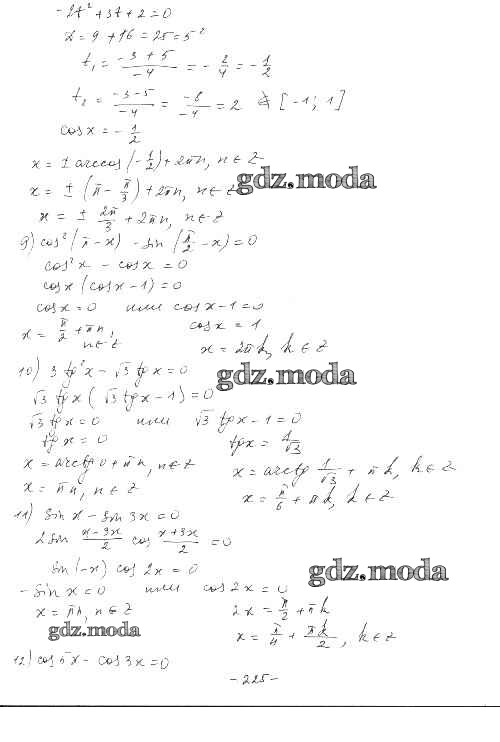 -2t² + 3t + 2 = 0
D = 9 + 16 = 25 = 5²
t₁ = (-3 + 5)/-4 = -2/4 = -1/2
t₂ = (-3 - 5)/-4 = -8/-4 = 2 ∉ [-1; 1]
cos x = -1/2
x = ± arccos(-1/2) + 2πn, n ∈ Z
x = ± (π - π/3) + 2πn, n ∈ Z
gdz.moda
x = ± 2π/3 + 2πn, n ∈ Z
9) cos²(π - x) - sin(π/2 - x) = 0
cos²x - cos x = 0
cos x (cos x - 1) = 0
cos x = 0 или cos x - 1 = 0
x = π/2 + πn, n ∈ Z cos x = 1
x = 2πk, k ∈ Z
10) 3 tg²x - √3 tg x = 0
gdz.moda
√3 tg x (√3 tg x - 1) = 0
√3 tg x = 0 или √3 tg x - 1 = 0
tg x = 0 tg x = 1/√3
x = arctg 0 + πn, n ∈ Z x = arctg 1/√3 + πk, k ∈ Z
x = πn, n ∈ Z x = π/6 + πk, k ∈ Z
11) sin x - sin 3x = 0
2 sin (x - 3x)/2 cos (x + 3x)/2 = 0
sin(-x) cos 2x = 0
gdz.moda
- sin x = 0 или cos 2x = 0
x = πn, n ∈ Z 2x = π/2 + πk
gdz.moda
x = π/4 + πk/2, k ∈ Z
12) cos 5x - cos 3x = 0
- 225 -